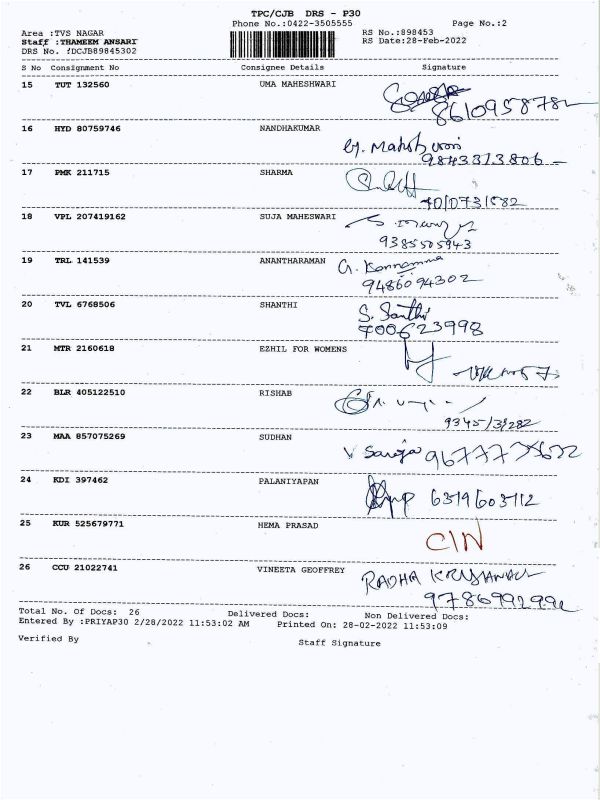 TPC/CJB DRS - P30
Phone No.:0422-3505555 Page No.:2
Area :TVS NAGAR RS No.:898453
Staff :THAMEEM ANSARI RS Date:28-Feb-2022
DRS No. fDCJB89845302
S No Consignment No Consignee Details Signature
15 TUT 132560 UMA MAHESHWARI
8610958782
16 HYD 80759746 NANDHAKUMAR
9843313806
17 PMK 211715 SHARMA
18 VPL 207419162 SUJA MAHESWARI
9385505943
19 TRL 141539 ANANTHARAMAN G. Kannamma
9486094302
20 TVL 6768506 SHANTHI S. Santhi
700623998
21 MTR 2160618 EZHIL FOR WOMENS
22 BLR 405122510 RISHAB
23 MAA 857075269 SUDHAN V Saroja
24 KDI 397462 PALANIYAPAN 6319603112
25 KUR 525679771 HEMA PRASAD
C/N
26 CCU 21022741 VINEETA GEOFFREY RADHA
Total No. Of Docs: 26 Delivered Docs: Non Delivered Docs:
Entered By :PRIYAP30 2/28/2022 11:53:02 AM Printed On: 28-02-2022 11:53:09
Verified By Staff Signature